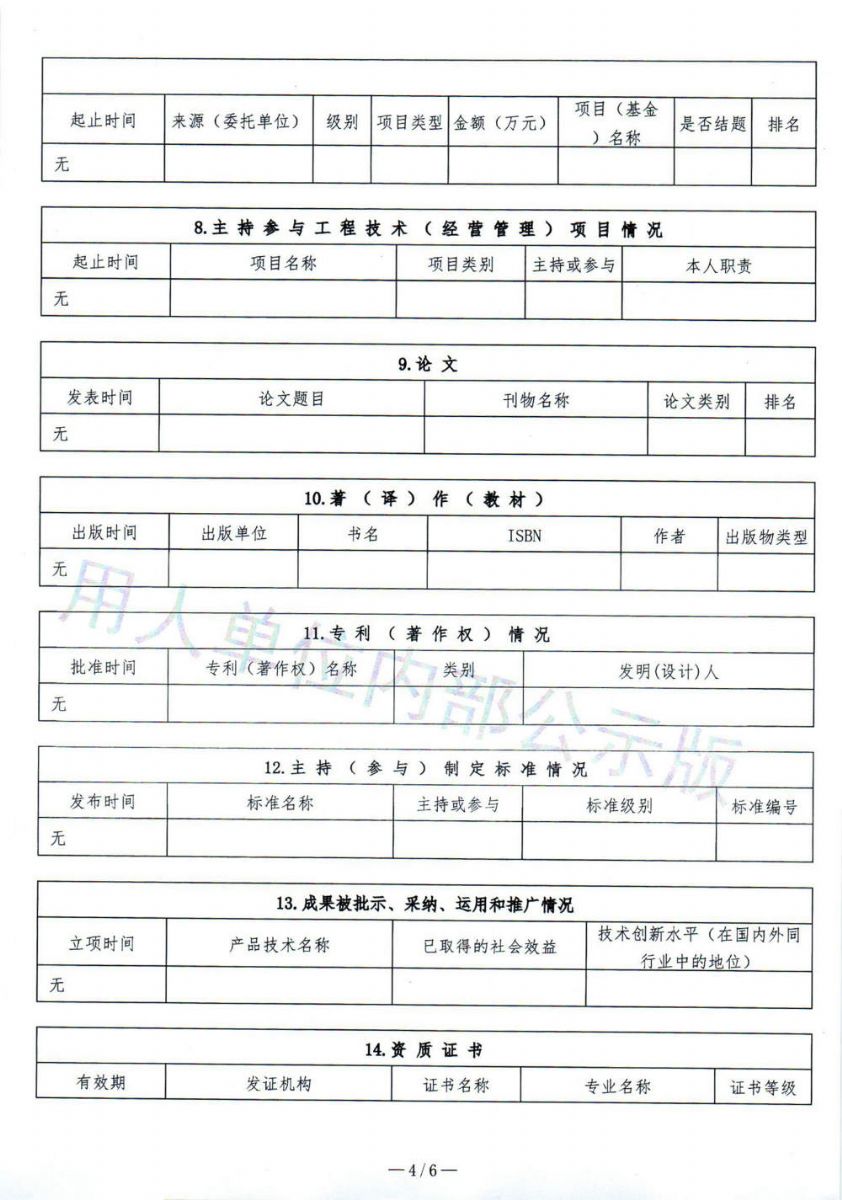 起止时间 来源（委托单位） 级别 项目类型 金额（万元） 项目（基金
）名称 是否结题 排名
无
8.主持参与工程技术（经营管理）项目情况
起止时间 项目名称 项目类别 主持或参与 本人职责
无
9.论文
发表时间 论文题目 刊物名称 论文类别 排名
无
10.著（译）作（教材）
出版时间 出版单位 书名 ISBN 作者 出版物类型
无
用人单位内部公示版
11.专利（著作权）情况
批准时间 专利（著作权）名称 类别 发明(设计)人
无
12.主持（参与）制定标准情况
发布时间 标准名称 主持或参与 标准级别 标准编号
无
13.成果被批示、采纳、运用和推广情况
立项时间 产品技术名称 已取得的社会效益 技术创新水平（在国内外同
行业中的地位）
无
14.资质证书
有效期 发证机构 证书名称 专业名称 证书等级
—4/6—